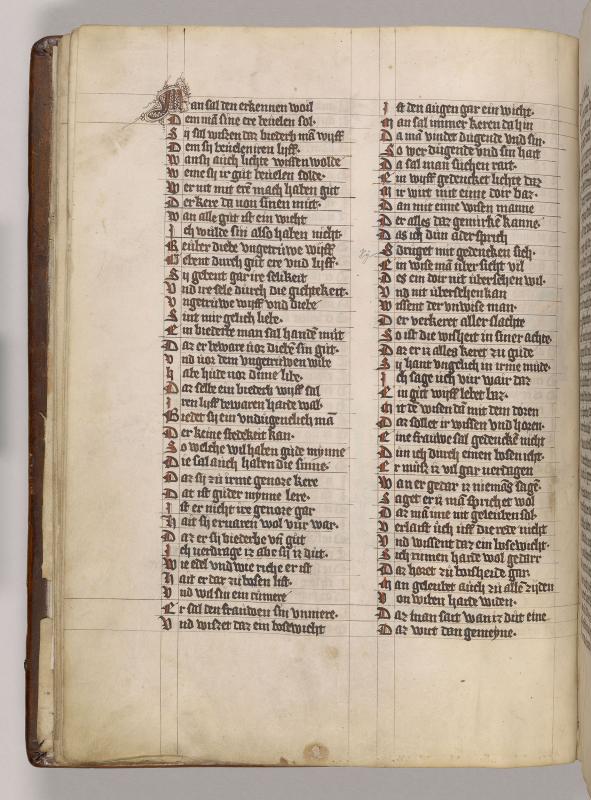 Man sal den erkennen woil
Dem mā sine ere beuelen sol·
Sij sal wissen daz biederb mā wijff
Dem sij beuelen iren lijff·
Wan sij auch lichte wissen wolde
Weme sij ir gut beuelen solde·
Wer mit mit erē mach haben gut
Der kere da von sinen mut·
Wan alle gut ist ein wicht
Ich wulde sin also haben nicht·
Reuber diebe vngetruwe wijff
Gebent durch gut ere vnd lijff·
Sij gebent gar ire selikeit
Vnd ire sele durch die gichtekeit·
Vngetruwe wijff vnd diebe
Sint mir gelich liebe·
Ein biederbe man sal handē mit
Daz er beware uor diebē sin gut·
Vnd uor dem vngetruwen wibe
Habe hude uor dime libe·
Daz selbe ein biederb wijff sal
Iren lijff bewaren harde wal·
Biedet sij ein vndugentlich mā
Der keine stedekeit kan·
So welche wil haben gude mynne
Die sal auch haben die sinne·
Daz sij zu irme genoze kere
Dat ist guder mynne lere·
Ist er nicht ire genoze gar
Hait sij eruaren wol vur war·
Daz er sij biederbe vn̄ gut
Ich uerdrage iz abe sij iz dut·
Wie edel vnd wie riche er ist
Hait er dar zu bosen list·
Vnd wil sin ein rumere
Er sal den frauwen sin vnmere·
Vnd wiszet daz ein bosewicht
Ist den augen gar ein wicht·
Man sal immer keren da hin
Da mā vindet dugende vnd sin·
So wer dugende vnd sin hait
Da sal man suchen rait·
Ein wijff gedencket lichte daz
Mir wirt mit eime doir baz·
Dan mit eime wisen manne
Der alles daz gemircke kanne·
Das ich dun ader sprich
S druget mit gedencken sich·
Ein wise mā uber sicht vil
Des ein doir nit ubersehen wil·
Vnd nit ubersehen kan
Wissent der vnwise man·
Der verkeret aller slachte
So ist die wisheit in siner achte
Daz er iz alles keret zu gude
Sij hant vngelich in irme mude·
Ich sage uch vur wair daz
Ein gut wijff lebet baz·
Mit de wisen dā mit dem doren
Daz sollet ir wissen vnd horen·
Eine frauwe sal gedenckē nicht
Dun ich durch einen bosen icht·
Er muisz iz vil gar uerdagen
Wan er gedar iz niemās sagē·
Saget er iz mā sprichet wol
Daz mā ime nit geleuben sol·
Verlaist uch uff die rede nicht
Vnd wissent daz ein bosewicht·
Sich rumen harde wol gedarr
Daz horet zu boisheide gar·
Man geleubet auch zu allē zijden
Von wiben harde widen·
Daz man sait wan iz dut eine
Daz wirt dan gemeyne·